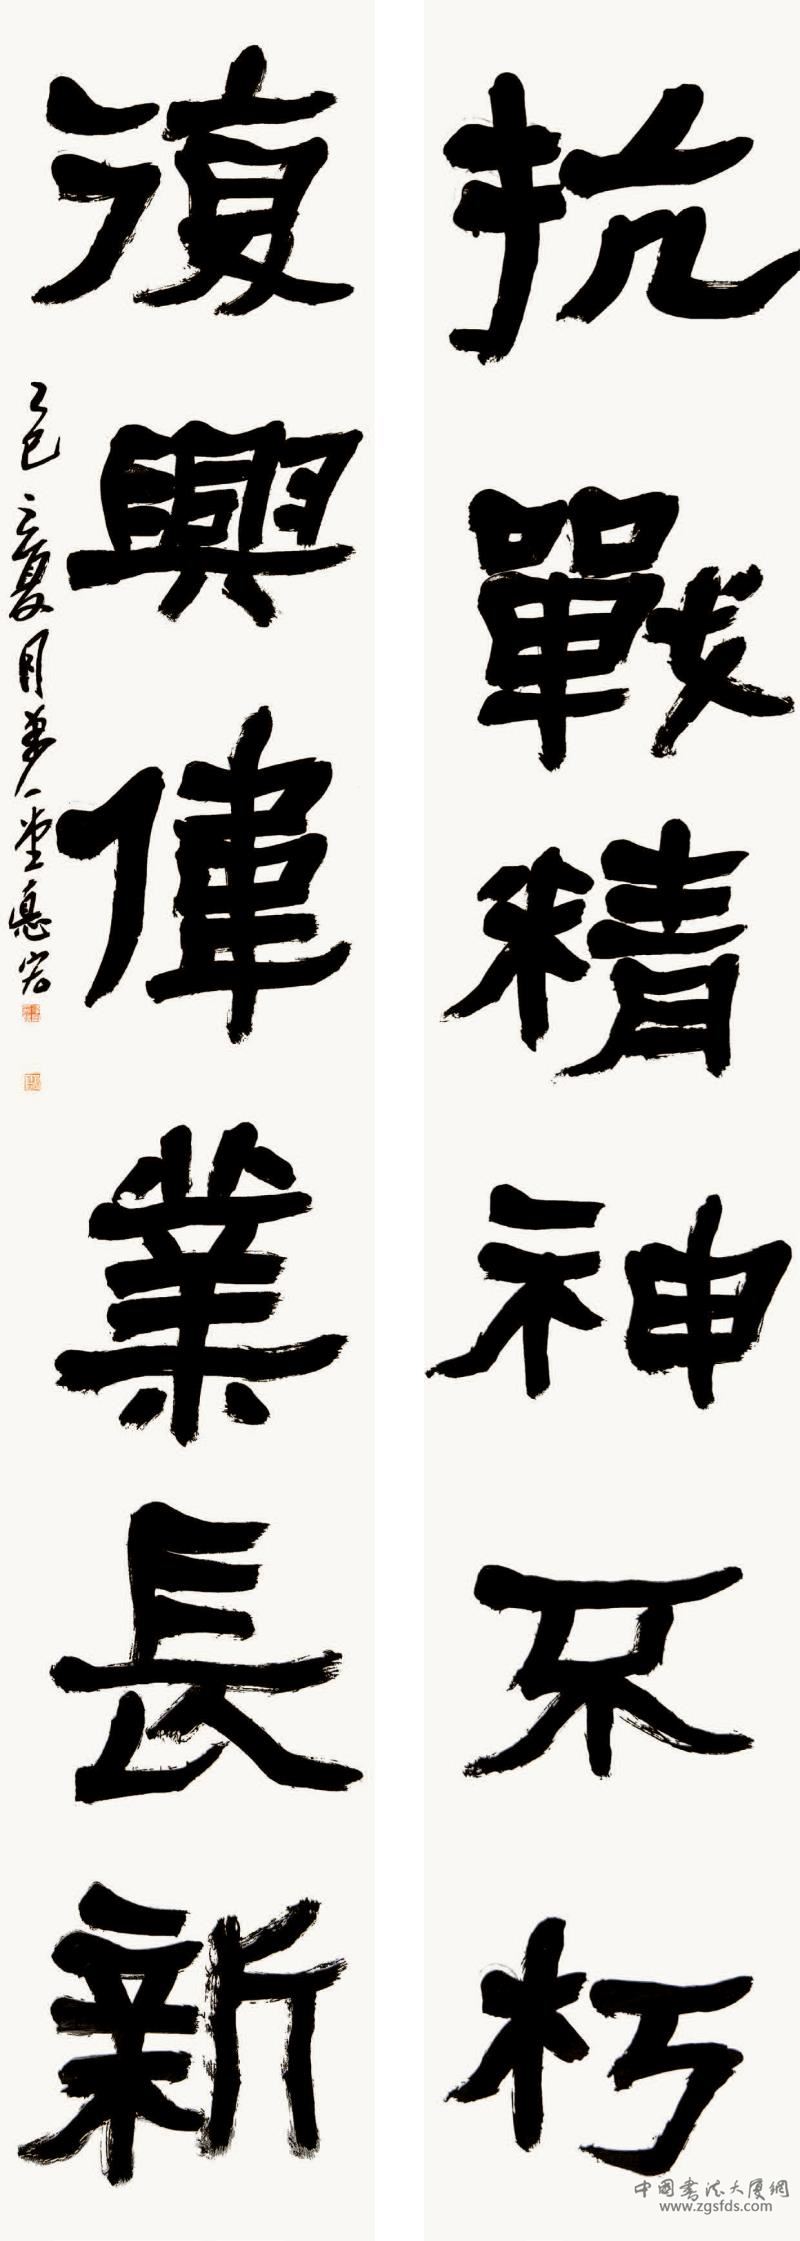 抗戰精神不朽
復興偉業長新
乙巳之夏月
中国書法大厦網
www.zgsfds.com